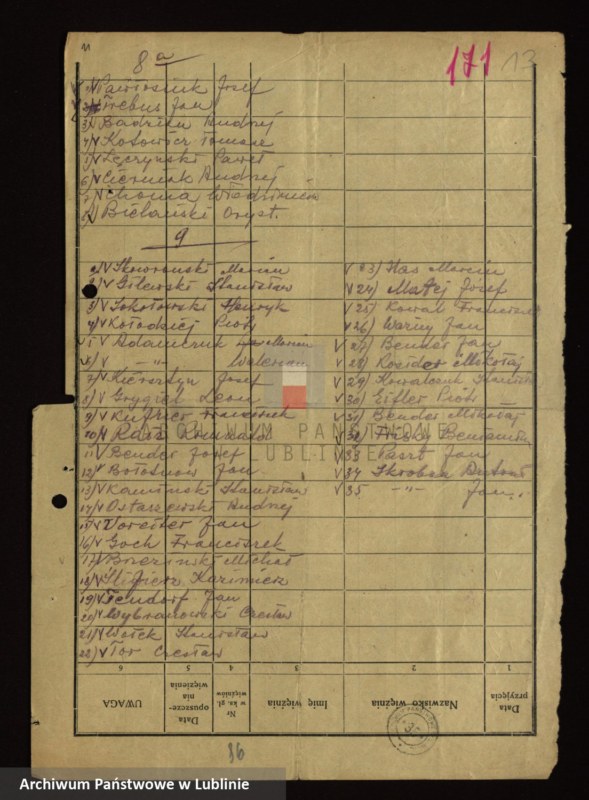 8 a
171
13
1) V Pawłosiuk Józef
V 2) Trebus Jan
3) V Badziak Andrzej
4) V Kotowicz Tomasz
5) V Łęczyński Paweł
6) V Cierniak Andrzej
7) V Choma Włodzimierz
8) V Bielański Oryst.
9
1) V Skowroński Marian
2) V Gilewski Stanisław
3) V Sokołowski Henryk
4) V Kołodziej Piotr
5) V Adamczuk Marian
6) V -"- Walerian
7) V Kiersztyn Józef
8) V Grygiel Leon
9) V Franciszek
10) V
11) V Bender Józef
12) V Jan
13) V Kamiński Stanisław
14) V Ostaszewski Andrzej
15) V Jan
16) V Goch Franciszek
17) V Brzeziński Michał
18) V Kazimierz
19) V Tendorf Jan
20) V Wybranowski Czesław
21) V Wołek Stanisław
22) V Tor Czesław
V 23) Has Marcin
V 24) Matej Józef
V 25) Kowal Franciszek
V 26) Warny Jan
V 27) Bender Jan
V 28) Mikołaj
V 29) Kowalczuk Stanisław
V 30) Gitler Piotr
V 31) Bender Mikołaj
V 32 Beniamin
V 33 Jan
V 34 Skroban
V 35 -"- Jan
ARCHIWUM PAŃSTWOWE
W LUBLINIE
6
5
4
3
2
1
UWAGA
Data opuszczenia więzienia
Nr w ks. gł. więźniów
Imię więźnia
Nazwisko więźnia i
Data przyjęcia
86
Archiwum Państwowe w Lublinie